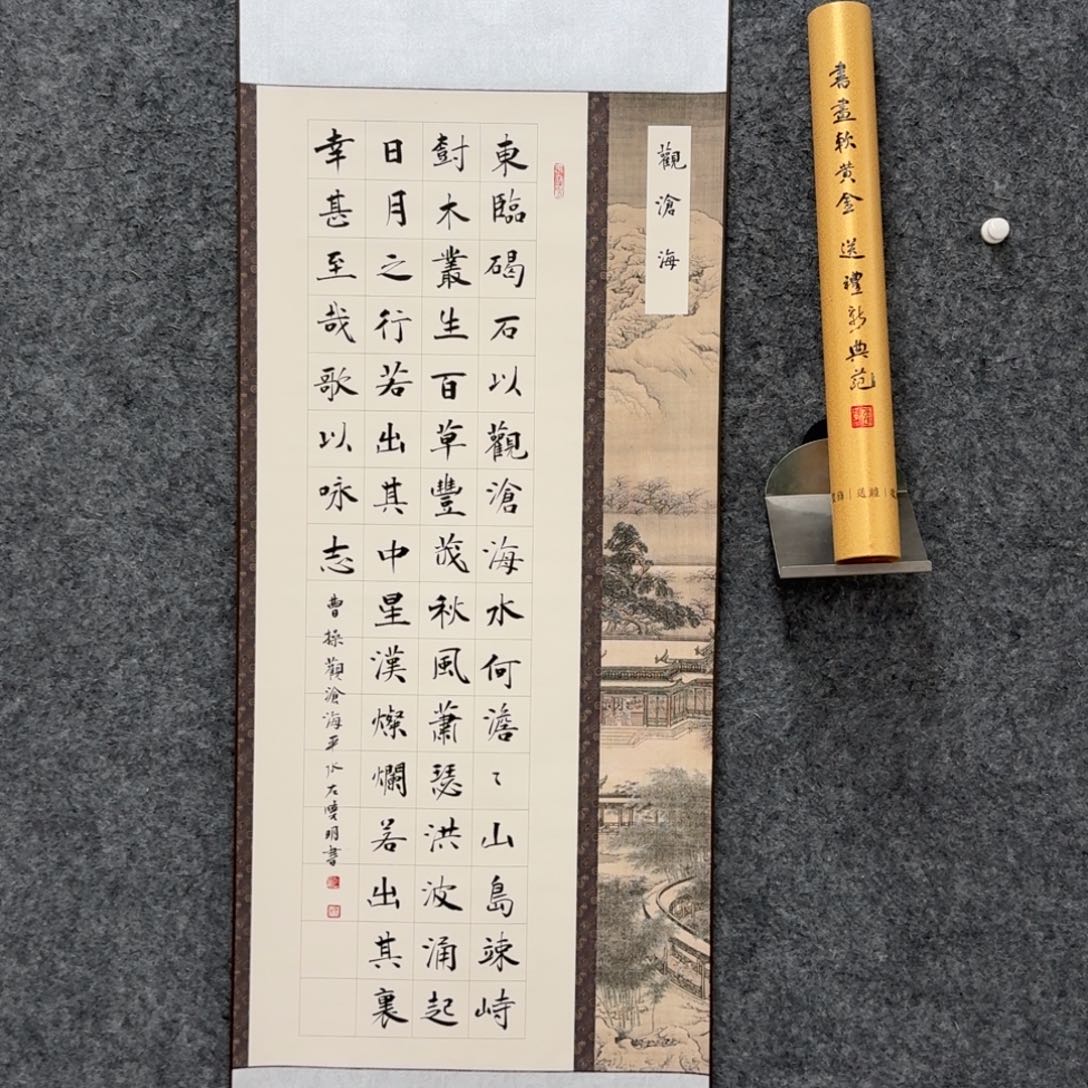 觀滄海
東臨碣石以觀滄海水何澹〻山島竦峙
樹木叢生百草豐茂秋風蕭瑟洪波涌起
日月之行若出其中星漢燦爛若出其裏
幸甚至哉歌以咏志
曹操觀滄海平水左曉明書
書畫軟黄金 送禮新典范